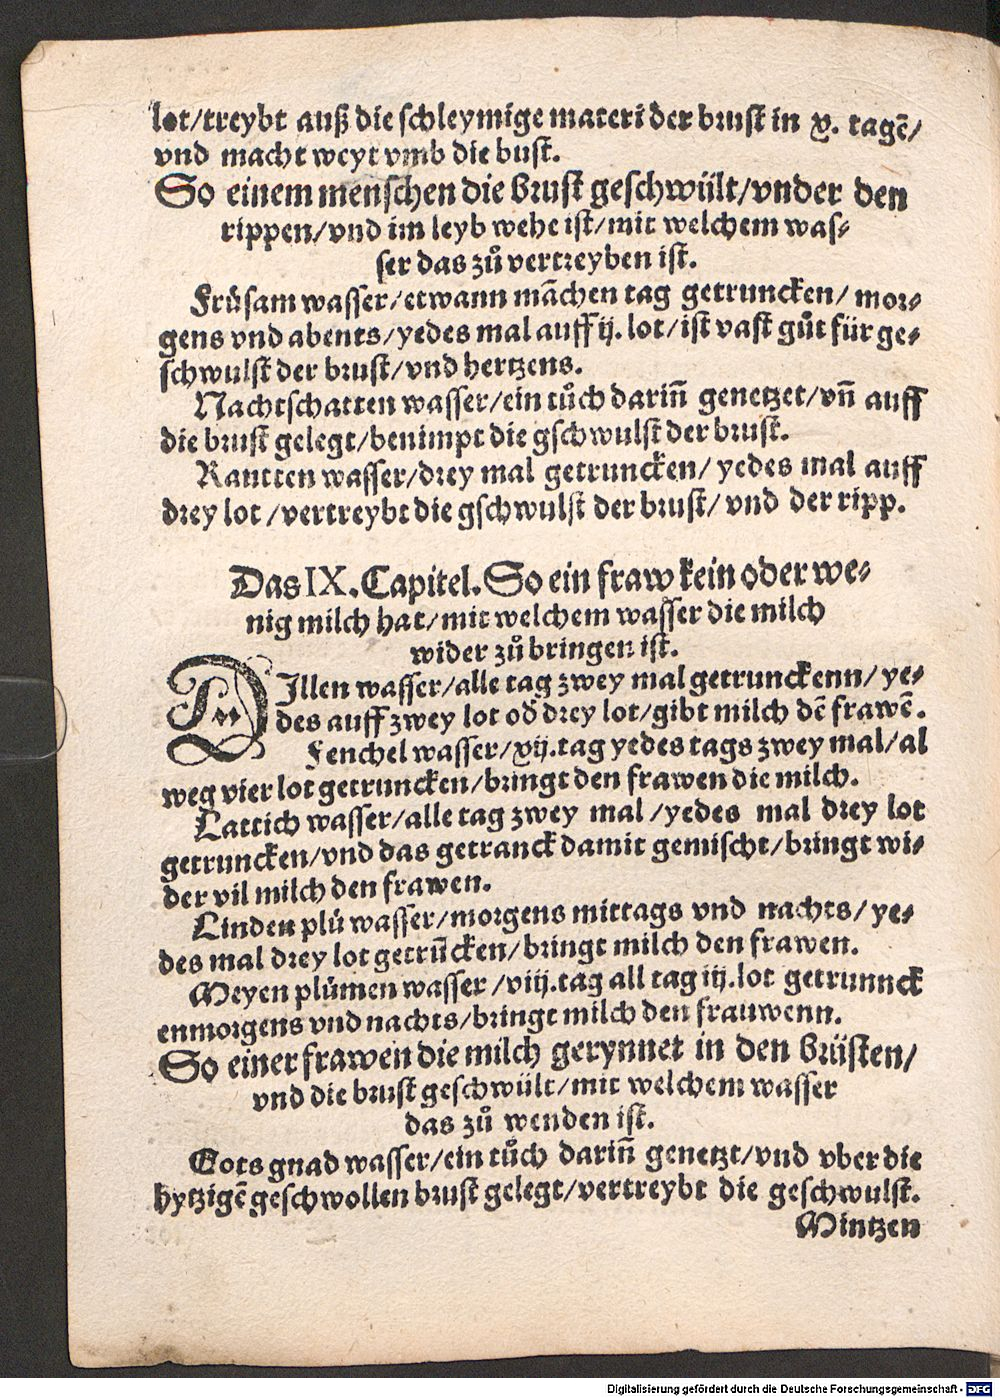 lot/treybt auß die schleymige materi der brust in x. tagẽ/
vnd macht weyt vmb die bust.
So einem menschen die Brust geschwült/vnder den
rippen/vnd im leyb wehe ist/mit welchem was⸗
ser das zů vertreyben ist.
Frůsam wasser/etwann mãchen tag getruncken/ mor⸗
gens vnd abents/yedes mal auff ij. lot/ist vast gůt für ge⸗
schwulst der brust/vnd hertzens.
Nachtschatten wasser/ein tůch dariñ genetzet/vñ auff
die brust gelegt/benimpt die gschwulst der brust.
Rautten wasser/drey mal getruncken/ yedes mal auff
drey lot/vertreybt die gschwulst der brust/ vnd der ripp.
Das IX. Capitel. So ein fraw kein oder we⸗
nig milch hat/mit welchem wasser die milch
wider zů bringen ist.
DIllen wasser/alle tag zwey mal getrunckenn/ ye⸗
des auff zwey lot oď drey lot/gibt milch dẽ frawẽ.
Fenchel wasser/xij.tag yedes tags zwey mal/al
weg vier lot getruncken/bringt den frawen die milch.
Lattich wasser/alle tag zwey mal/yedes mal drey lot
getruncken/vnd das getranck damit gemischt/bringt wi⸗
der vil milch den frawen.
Linden plů wasser/morgens mittags vnd nachts/ ye⸗
des mal drey lot getrũcken/bringt milch den frawen.
Meyen plůmen wasser/viij.tag all tag iij.lot getrunnck
enmorgens vnd nachts/bringt milch den frauwenn.
So einer frawen die milch gerynnet in den Brüsten/
vnd die brust geschwült/mit welchem wasser
das zů wenden ist.
Gots gnad wasser/ein tůch dariñ genetzt/vnd vber die
hytzigẽ geschwollen brust gelegt/vertreybt die geschwulst.
Mintzen
Digitalisierung gefördert durch die Deutsche Forschungsgemeinschaft - DFG